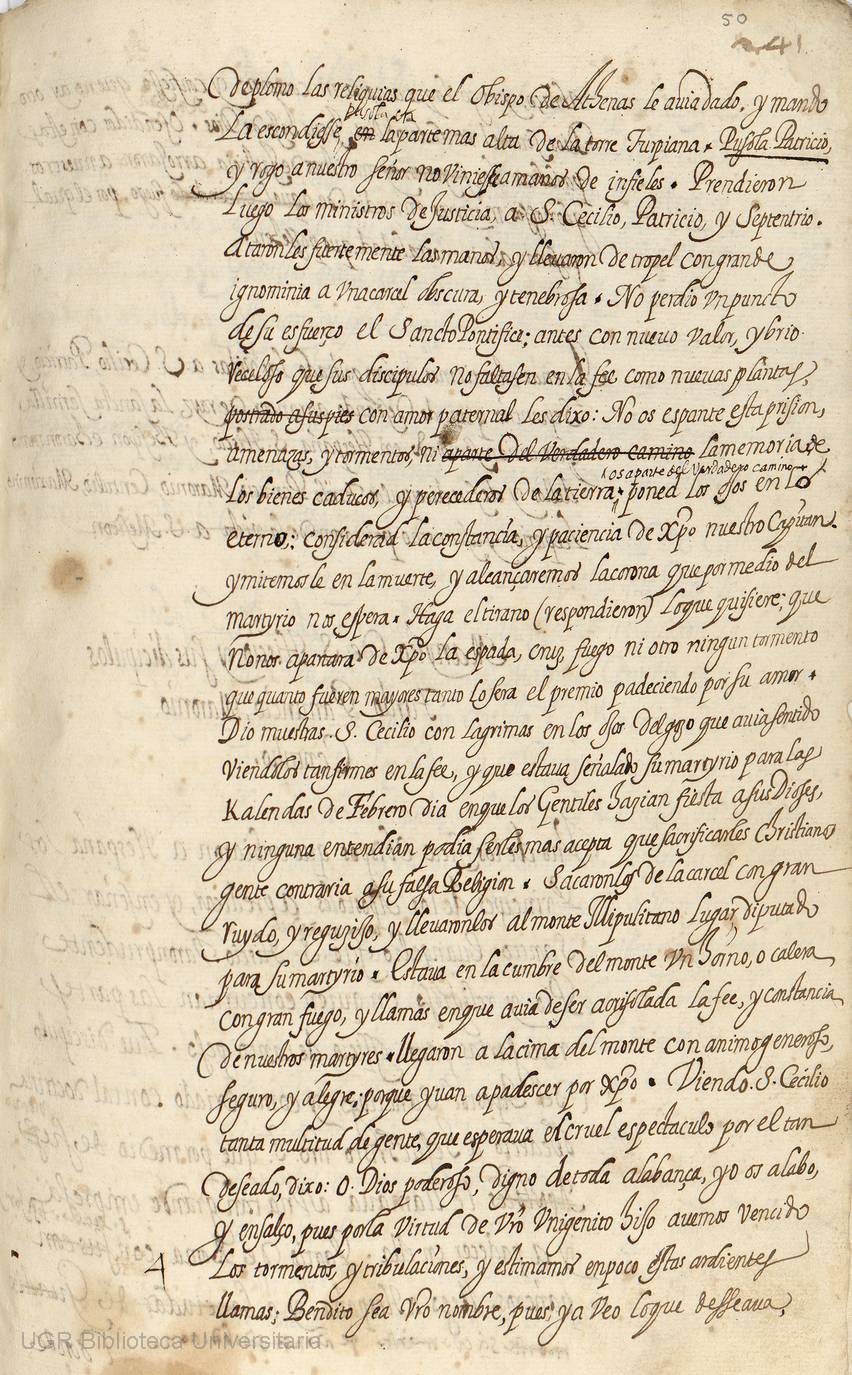 50
41
de plomo las reliquias que el Obispo de Athenas le avia dado, y mando
puesta esta
La escondiesse, en la parte mas alta de la torre Turpiana. Pusola Patricio,
y rogo a nuestro señor no viniesse a manos de infieles. Prendieron
luego los ministros de Justicia, a S. Cecilio, Patricio, y Septentrio.
Ataronles fuertemente las manos, y llevaron de tropel con grande
ignominia a una carcel obscura, y tenebrosa. No perdio un puncto
de su esfuerço el Sancto Pontifice; antes con nuevo valor, y brio
receloso que sus discipulos no faltasen en la fee como nuevas plantas,
postrado a sus pies con amor paternal les dixo: No os espante esta prision,
amenazas, y tormentos, ni aparte del verdadero camino la memoria de
os aparte del verdadero camino
los bienes caducos, y perecederos de la tierra; poned los ojos en lo
eterno; considerad la constancia, y paciencia de Xpo nuestro Capitan.
ymitemosle en la muerte, y alcançaremos la corona que por medio del
martyrio nos espera. Haga el tirano (respondieron) lo que quisiere; que
no nos apartara de Xpo la espada, cruz, fuego ni otro ningun tormento
que quanto fueren mayores tanto lo sera el premio padeciendo por su amor.
Dio muestras S. Cecilio con lagrimas en los ojos del gozo que avia sentido
viendolos tan firmes en la fee, y que estava señalado su martyrio para las
Kalendas de Febrero dia en que los Gentiles hazian fiesta a sus Dioses,
y ninguna entendian podia serles mas acepta que sacrificarles Christianos
gente contraria a su falsa Religion. Sacaronlos de la carcel con gran
ruydo, y reguzijo, y llevaronlos al monte Illipulitano lugar diputado
para su martyrio. Estava en la cumbre del monte un horno, o calera
con gran fuego, y llamas en que avia de ser acrisolada la fee, y constancia
de nuestros martyres. llegaron a la cima del monte con animo generoso,
seguro, y alegre; porque yuan a padescer por Xpo. Viendo S. Cecilio
tanta multitud de gente, que esperava el cruel espectaculo por el tan
deseado, dixo: O Dios poderoso, digno de toda alabança, yo os alabo,
y ensalço, pues por la virtud de Vro Unigenito hijo avemos vencido
4
los tormentos, y tribulaciones, y estimamos en poco estas ardientes
llamas; Bendito sea Vro nombre, pues ya veo lo que desseava,
UGR Biblioteca Universitaria